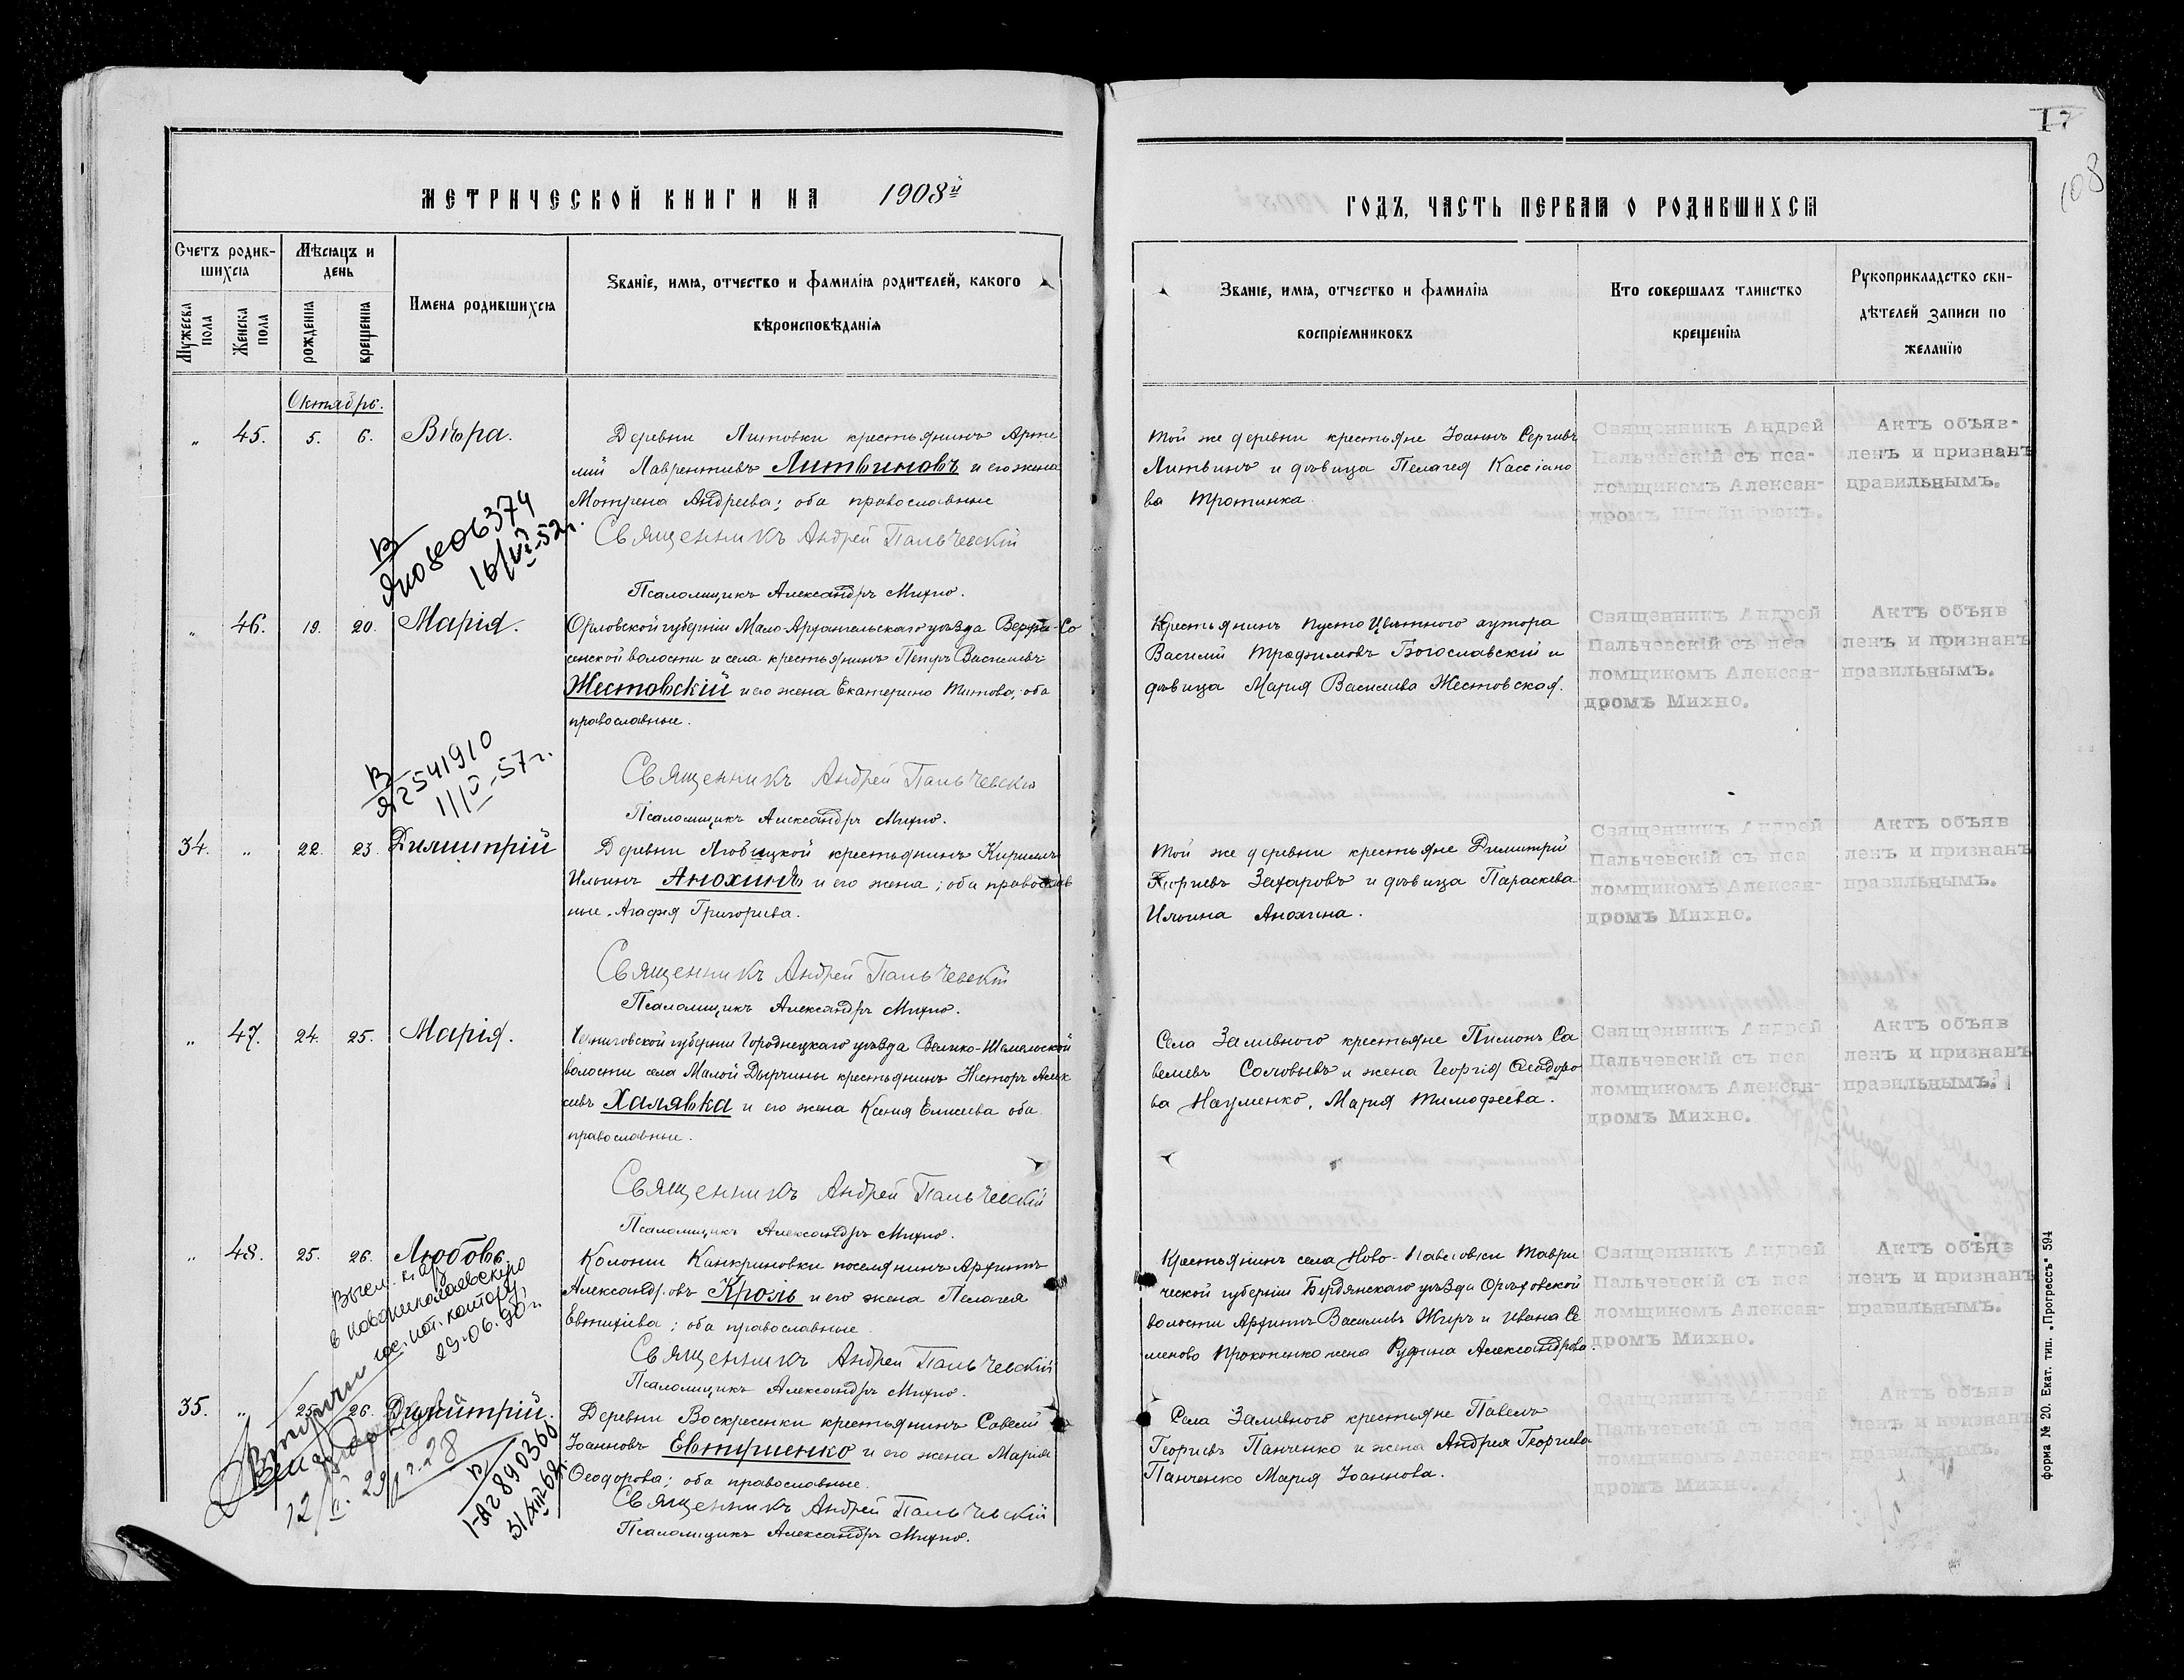 МЕТРИЧЕСКОЙ КНИГИ НА 1908й
Счетъ родив-
шихся
Мѣсяцъ и
день
Имена родившихся
Званіе, имя, отчество и фамилія родителей, какого
вѣроисповѣданія
Мужеска
пола
Женска
пола
рожденія
крещенія
Октябрь.
„ 45. 5. 6. Вѣра.
Деревни Литовки крестьянинъ Арте
мій Лаврентіевъ Литвиновъ и его жена
Мотрена Андреева; оба православные
Священникъ Андрей Пальчевскій
Псаломщикъ Александръ Михно.
16/VI-52г.
„ 46. 19. 20. Марія.
Орловской губерніи Мало-Архангельскаго уѣзда
сенской волости и села крестьянинъ Петръ Васильевъ
Жестовскій и его жена Екатерина Титова, оба
православные.
Священникъ Андрей Пальчевскій
Псаломщикъ Александръ Михно.
2541910
34. „ 22. 23. Димитрій
Деревни Любицкой крестьянинъ Кириллъ
Ильинъ Анохинъ и его жена; оба православ
ные, Агафія Григорьева.
Священникъ Андрей Пальчевскій
Псаломщикъ Александръ Михно.
„ 47. 24. 25. Марія.
Черниговской губерніи Городнецкаго уѣзда
волости села Малой Дырчины крестьянинъ Несторъ Алек
сѣевъ Халявка и его жена Ксенія Елисеева оба
православные.
Священникъ Андрей Пальчевскій
Псаломщикъ Александръ Михно.
„ 48. 25. 26. Любовь
Колоніи Канкриновки поселянинъ Архипъ
Александровъ Кроль и его жена Пелагея
Евтихіева; оба православные
Священникъ Андрей Пальчевскій
Псаломщикъ Александръ Михно.
в новониколаевскую
гос. нот. контору
29.06.90г.
35. „ 25. 26. Димитрій.
Деревни Воскресенки крестьянинъ Савелій
Іоанновъ Евтушенко и его жена Марія
Ѳеодорова; оба православные.
Священникъ Андрей Пальчевскій
Псаломщикъ Александръ Михно.
17
108
ГОДЪ, ЧАСТЬ ПЕРВАЯ О РОДИВШИХСЯ
Званіе, имя, отчество и фамилія
воспріемниковъ
Кто совершалъ таинство
крещенія
Рукоприкладство сви-
дѣтелей записи по
желанію
Той же деревни крестьяне Іоаннъ Сергіевъ
Литвинъ и дѣвица Пелагея Кассіано
ва Тротинка.
Священникъ Андрей
Пальчевскій съ пса-
ломщикомъ Алексан-
дромъ Штейнбрюкъ.
Актъ объяв-
ленъ и признанъ
правильнымъ.
Крестьянинъ Пусто Цвѣтного хутора
Василій Трофимовъ Богославскій и
дѣвица Марія Васильева Жестовская.
Священникъ Андрей
Пальчевскій съ пса
ломщикомъ Алексан-
дромъ Михно.
Актъ объяв
ленъ и признанъ
правильнымъ.
Той же деревни крестьяне Димитрій
Георгіевъ Захаровъ и дѣвица Параскева
Ильина Анохина.
Священникъ Андрей
Пальчевскій съ пса
ломщикомъ Алексан-
дромъ Михно.
Актъ объяв
ленъ и признанъ
правильнымъ.
Села Заливного крестьяне Пимонъ Са
вельевъ Соловьевъ и жена Георгія Ѳеодоро
ва Науменко, Марія Тимофеева.
Священникъ Андрей
Пальчевскій съ пса
ломщикомъ Алексан-
дромъ Михно.
Актъ объяв
ленъ и признанъ
правильнымъ.
Крестьянинъ села Ново-Павловки Таври
ческой губерніи Бердянскаго уѣзда Орѣховской
волости Архипъ Васильевъ Жиръ и Ивана Се
менова Прокопенко жена Руфина Александрова.
Священникъ Андрей
Пальчевскій съ пса
ломщикомъ Алексан-
дромъ Михно.
Актъ объяв
ленъ и признанъ
правильнымъ.
Села Заливного крестьяне Павелъ
Георгіевъ Панченко и жена Андрея Георгіева
Панченко Марія Іоаннова.
Священникъ Андрей
Пальчевскій съ пса
ломщикомъ Алексан-
дромъ Михно.
Актъ объяв
ленъ и признанъ
правильнымъ.
форма № 20. Екат. тип. „Прогрессъ“ 594